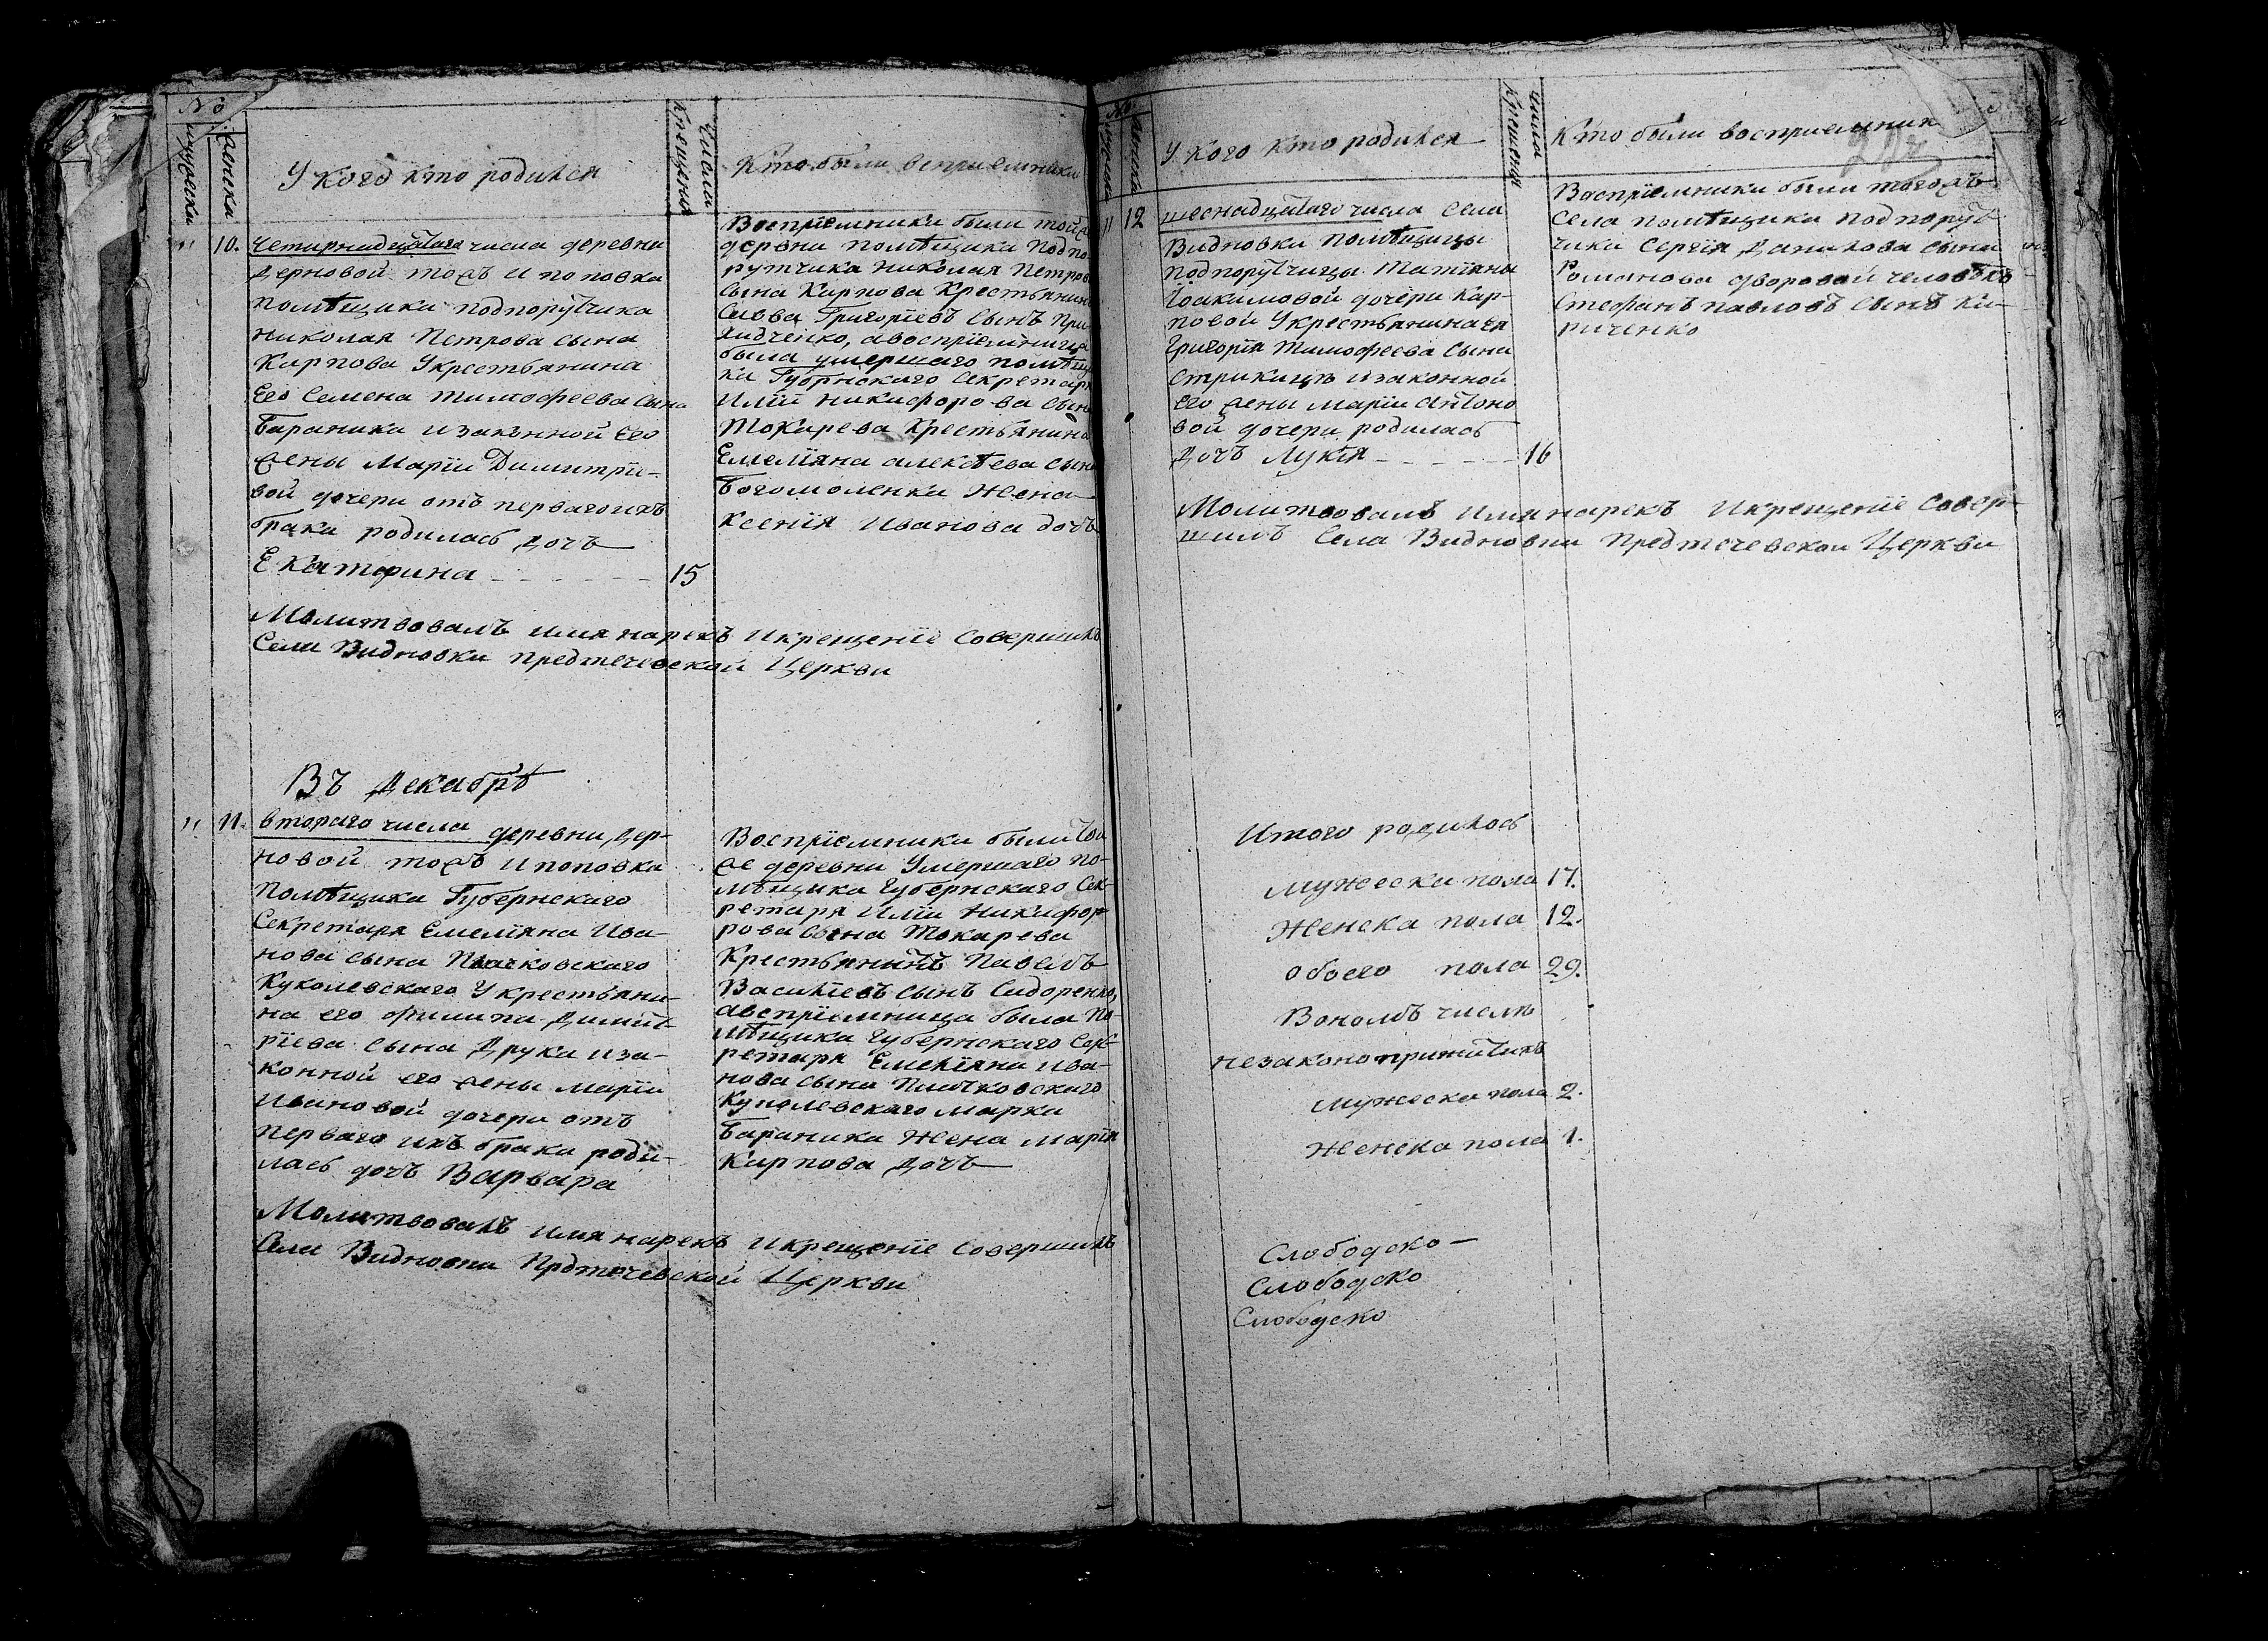 №
мужеска
женска
У кого кто родился
Числа
Крещения
Кто были восприемники
10. Четирнадцатого числа деревни
Дерновой тожъ и поповка
помѣщика подпорутчика
Николая Петрова сына
Карпова У крестьянина
Его Семена Тимофеева Сына
Бараника и законной Его
жены Маріи Димитріе-
вой дочери отъ перваго ихъ
брака родилась Дочь
Екатерина - - - - - - 15
Воспріемники были той ж
дервни помѣщика Подпо
рутчика Николая Петров
Сына Карпова Крестьянинъ
Савва Григоріевъ Сынъ При
ходченко, а воспріемница
была умершаго помѣщи
ка Губрнскаго Секретаря
Иліи Никифорова Сына
Токарева Крестьянина
Емеліяна алексѣева Сына
Богомоленки Жена
Ксенія Иванова дочь
Молитвовалъ имя нарекъ и крещеніе Совершилъ
Села Видновки Предтечевской Церкви
Въ Декабрѣ
11. втораго числа деревни, Дер-
новой тожъ и поповка
помѣщика Губернскаго
Секретаря Емеліяна Ива-
нова Сына
Куколевскаго У крестьяни-
на его Филипа Димит-
ріева Сына Друка и за-
конной его жены Маріи
Ивановой дочери отъ
перваго ихъ брака роди-
лась дочь Варвара
Воспріемники были той
же деревни Умершаго по-
мѣщика Губернскаго Сек-
ретаря Иліи Никифор-
рова Сына Токарева
Крестьянинъ Павелъ
Василіевъ Сынъ Сидоренко,
а воспріемница была По-
мѣщика Губернскаго Сек-
ретаря Емеліяна Ива-
нова Сына
Куколевскаго Марка
Бараника Жена Марія
Карпова Дочь
Молитвовалъ имя нарекъ и крещеніе Совершилъ
Села Видновки Прдтечевской Церкви
№
мужеска
женска
У кого кто родился
числа
Крещения
Кто были восприемник
12 шеснадцатого числа Села
Видновки Помѣщицы
Подпорутчицы Татіяны
Іоакимовой дочери Кар-
повой У крестьянина ея
Григорія Тимофеева Сына
и законной
Его жены Маріи Антоно
вой дочери родилась
Дочь Лукія - - - - - 16
Воспріемники были тогожъ
Села помѣщика Подпорут-
чика Сергія Данилова Сына
Романова дворовой человѣкъ
Стефанъ Павловъ Сынъ Ки-
риченко
Молитвовалъ имя нарекъ и крещеніе Совер-
шилъ Села Видновки Предтечевской Церкви
Итого родилось
Мужеска пола 17.
Женска пола 12.
обоего пола 29.
Вономъ числѣ
незаконоприжитихъ
Мужеска пола 2.
Женска пола 1.
Слободско-
Слободско
Слободско